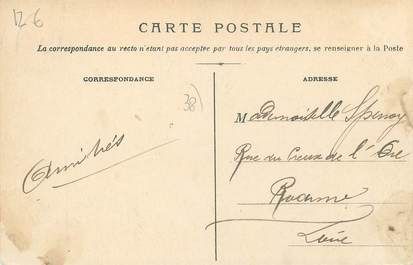 12 €
CARTE POSTALE
La correspondance au recto n'étant pas acceptée par tous les pays étrangers, se renseigner à la Poste
CORRESPONDANCE
ADRESSE
38)
Amitiés
Mademoiselle
Rue du Creux de l'Oie
Roanne
Loire